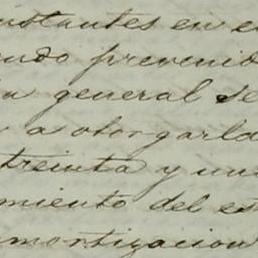 nstantes en e
endo prevenid
in general se
a otorgarla
treinta y un
miento del es
mortizacion